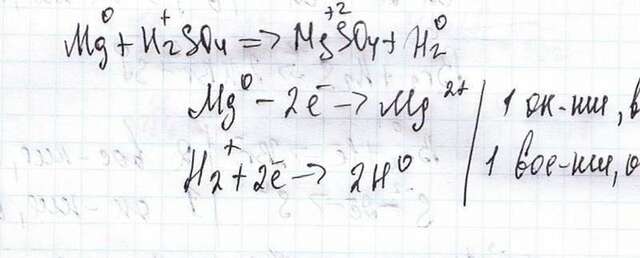 Mg⁰ + H₂⁺SO₄ => Mg⁺²SO₄ + H₂⁰
Mg⁰ - 2ē → Mg²⁺ | 1 ок-ние, в
H₂⁺ + 2ē → 2H⁰ | 1 вос-ние, о